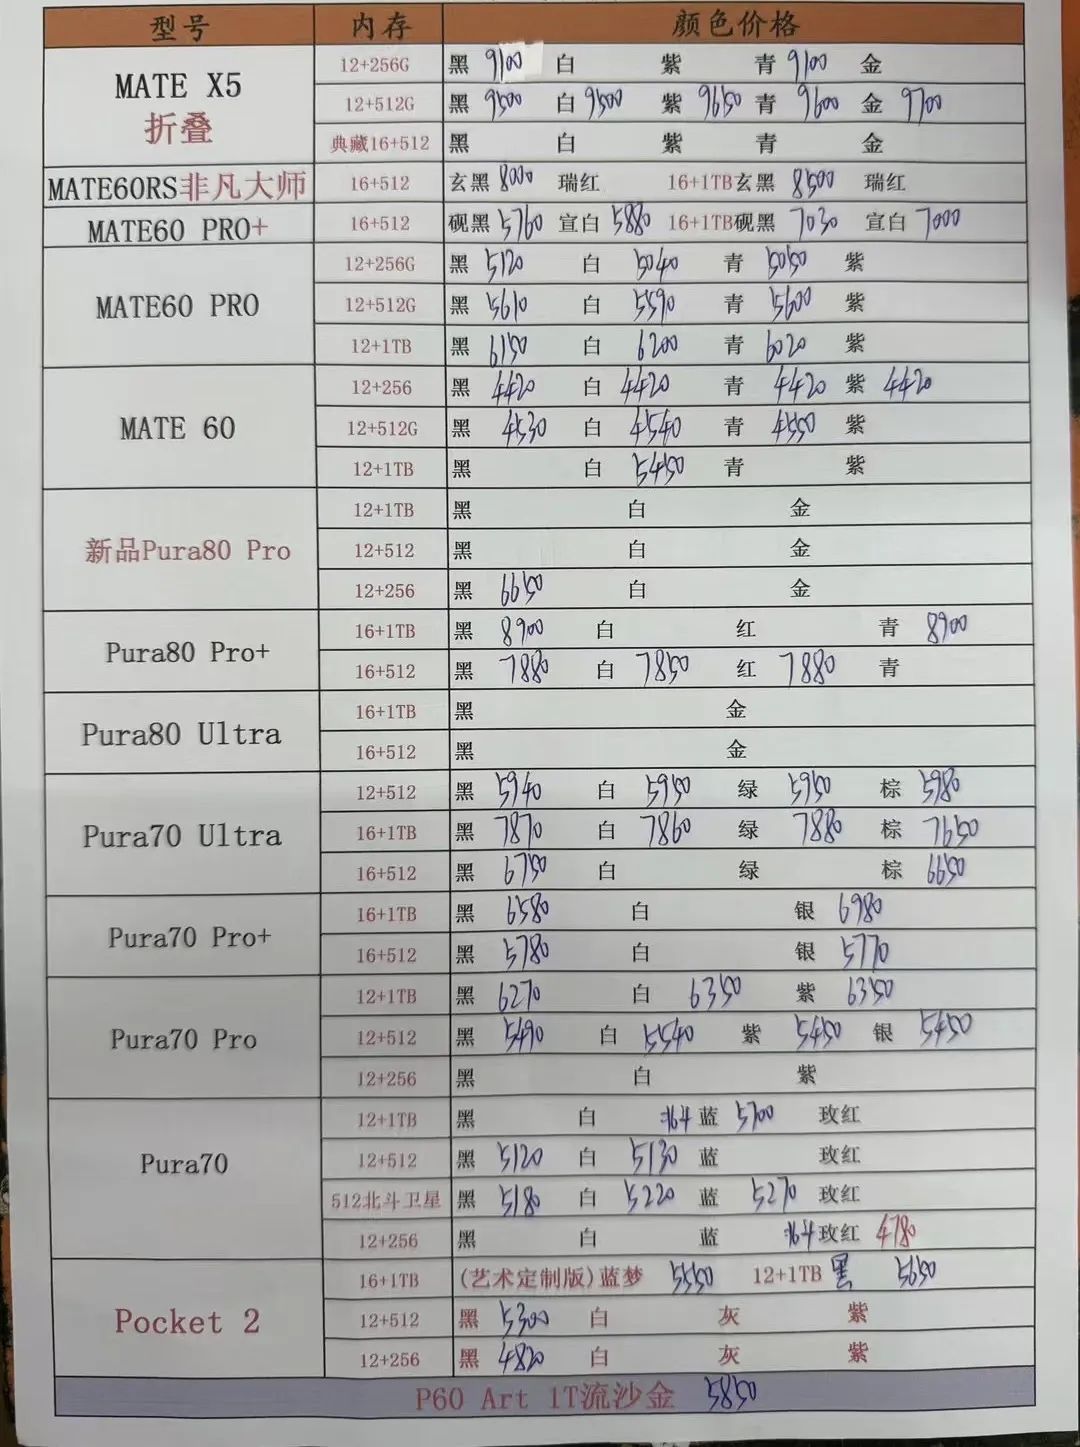 型号 内存 颜色价格
MATE X5 折叠 12+256G 黑 9100 白 紫 青 9100 金
12+512G 黑 9500 白 9500 紫 9650 青 9600 金 9700
典藏16+512 黑 白 紫 青 金
MATE60RS非凡大师 16+512 玄黑 8000 瑞红 16+1TB玄黑 8500 瑞红
MATE60 PRO+ 16+512 砚黑 5760 宣白 5880 16+1TB砚黑 7030 宣白 7000
MATE60 PRO 12+256G 黑 5120 白 5040 青 5050 紫
12+512G 黑 5610 白 5590 青 5600 紫
12+1TB 黑 6150 白 6200 青 6020 紫
MATE 60 12+256 黑 4420 白 4420 青 4420 紫 4420
12+512G 黑 4530 白 4540 青 4550 紫
12+1TB 黑 白 5450 青 紫
新品Pura80 Pro 12+1TB 黑 白 金
12+512 黑 白 金
12+256 黑 6650 白 金
Pura80 Pro+ 16+1TB 黑 8900 白 红 青 8900
16+512 黑 7880 白 7850 红 7880 青
Pura80 Ultra 16+1TB 黑 金
16+512 黑 金
Pura70 Ultra 12+512 黑 5940 白 5950 绿 5950 棕 5980
16+1TB 黑 7870 白 7860 绿 7880 棕 7650
16+512 黑 6750 白 绿 棕 6650
Pura70 Pro+ 16+1TB 黑 6580 白 银 6980
16+512 黑 5780 白 银 5770
Pura70 Pro 12+1TB 黑 6270 白 6350 紫 6350
12+512 黑 5490 白 5540 紫 5450 银 5450
12+256 黑 白 紫
Pura70 12+1TB 黑 白 北斗 蓝 5700 玫红
12+512 黑 5120 白 5130 蓝 玫红
512北斗卫星 黑 5180 白 5220 蓝 5270 玫红
12+256 黑 白 蓝 北斗 玫红 4780
Pocket 2 16+1TB (艺术定制版)蓝梦 5550 12+1TB 黑 5950
12+512 黑 5300 白 灰 紫
12+256 黑 4820 白 灰 紫
P60 Art 1T流沙金 5850